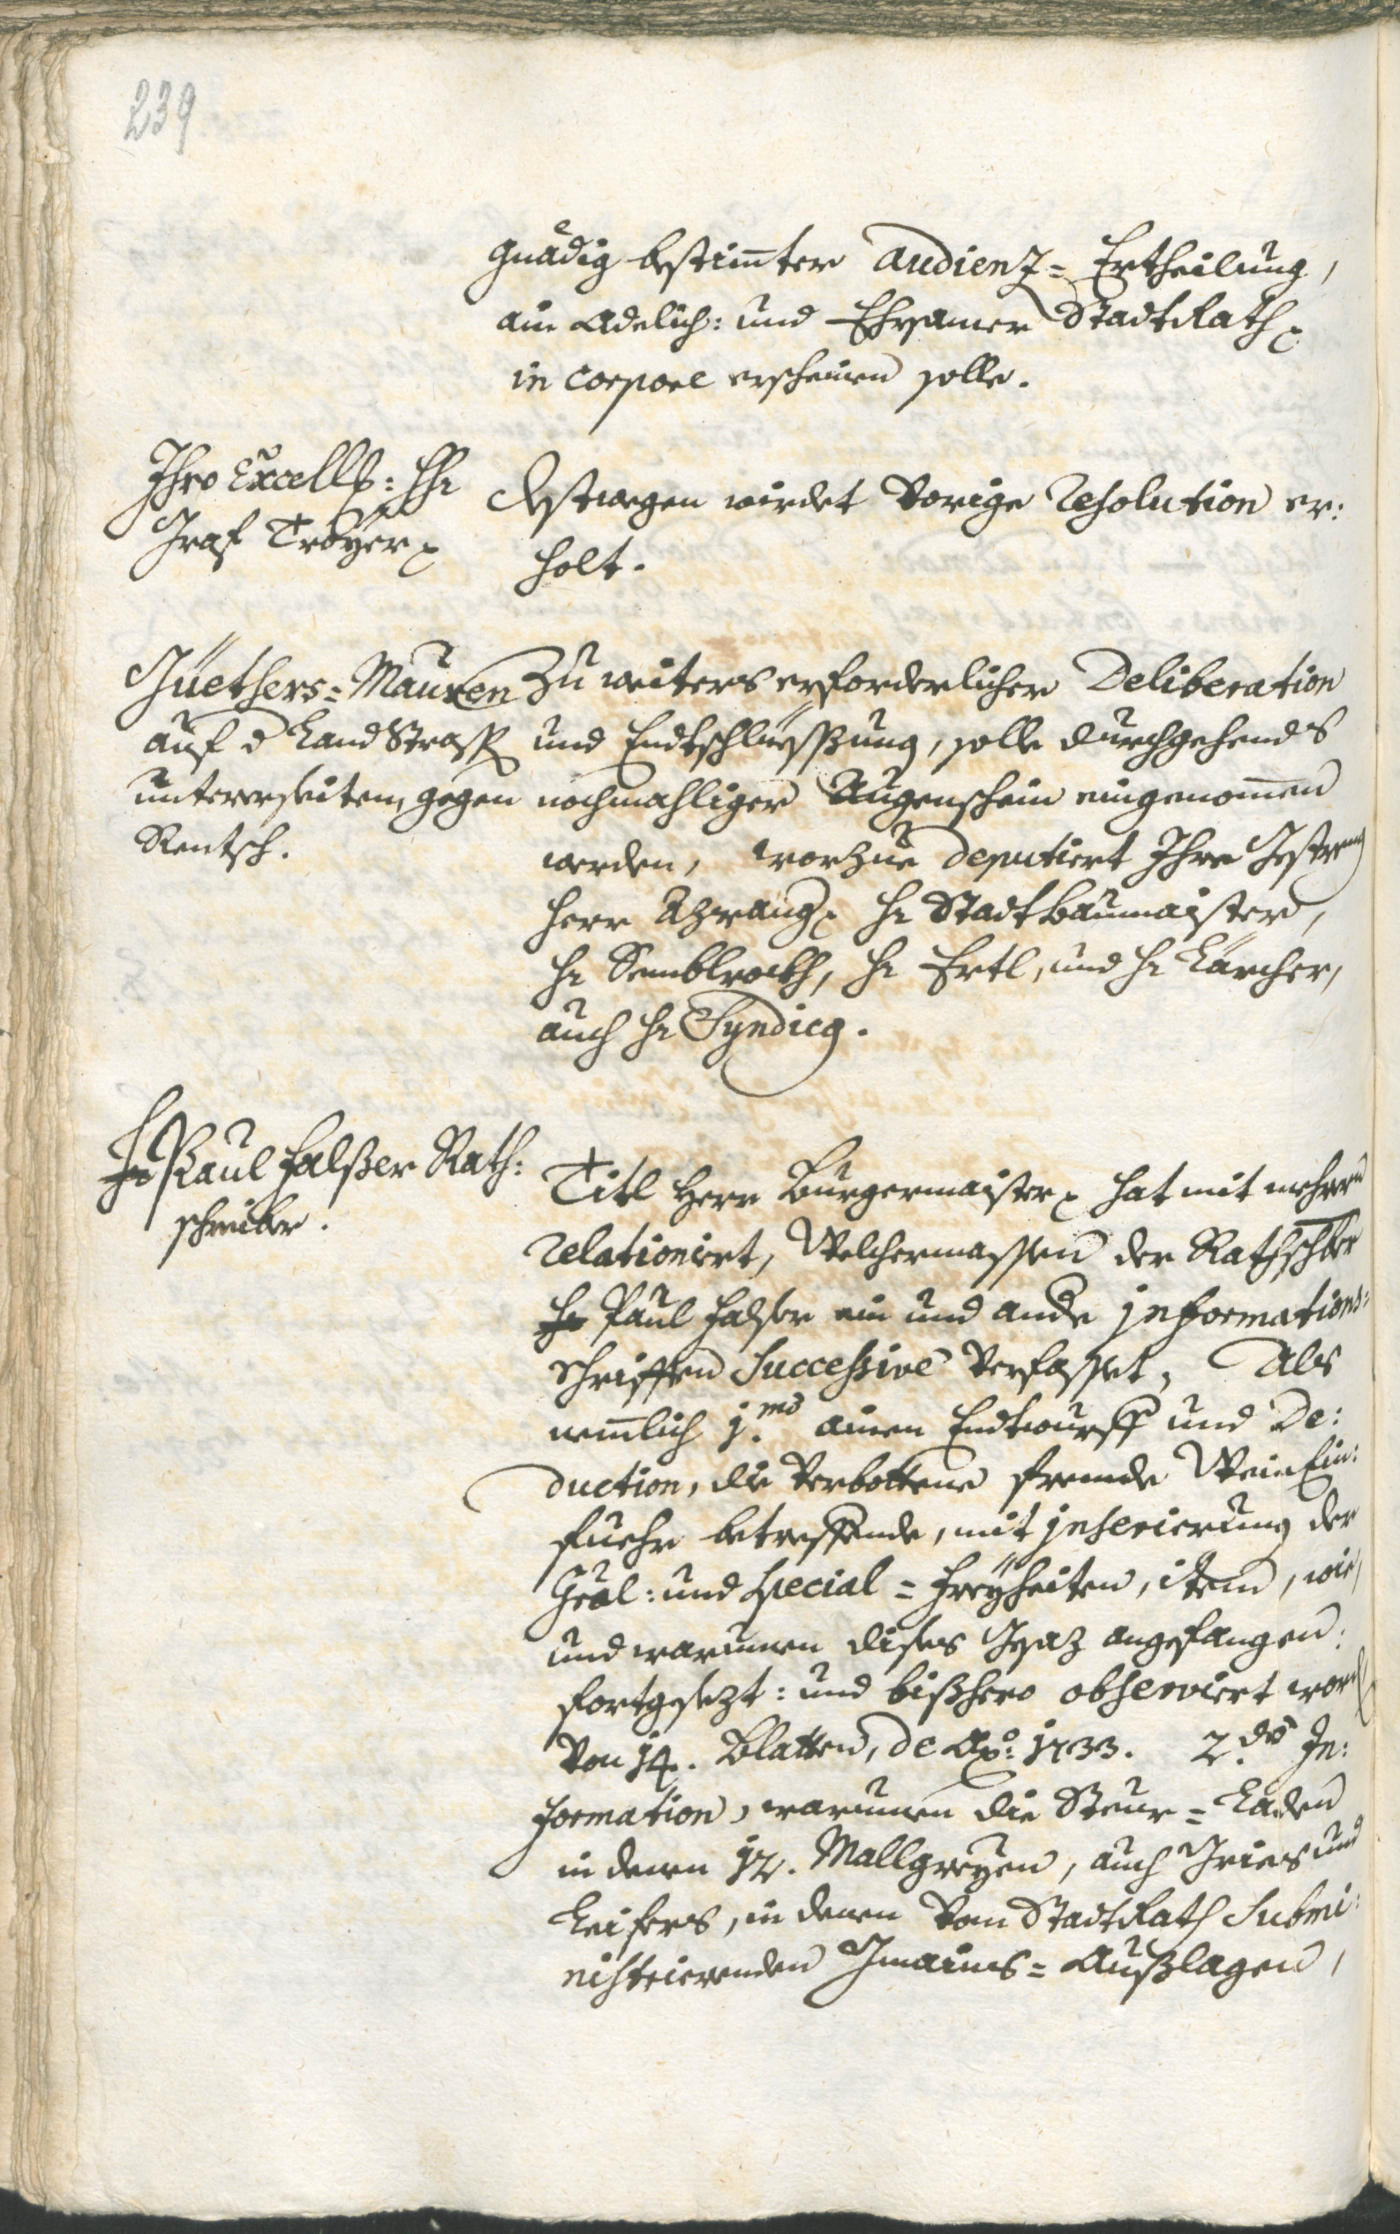 239
gnädig bestim̅ter Audienz=Ertheilung,
ain Adelich: und Ehrsamer StadtRath
in corpore erscheinen solle.
Ihro Excells: Hr
Graf Troÿer
Destwegen wirdet Vorige Resolution er:
holt.
Güethers=Mauren
auf d LandStrass
untererseiten, gegen
Rentsch.
Zu weiters erforderlicher Deliberation
und Endtschlüessung, solle durchgehends
nochmahliger Augenschein eingenom̅en
werden, worzue deputiert Ihro Gestreng
Herr Azwang, Hr Stadtbaumaister,
Hr Semblrockh, Hr Ertl, und Hr Karcher,
auch Hr Syndicg.
Hr Paul Falßer Rath:
schreiber.
Titl Herr Burgermaister hat mit mehrern
relationiert, Welchermassen der Rathschber
Hr Paul Falser ein und ande informations:
Schrifften Successivè Verfasset, Als
nem̅lich 1.mo ainen Endtwurff und De:
duction, die Verbottene frembde WeinEin:
fuehr betreffende, mit inserierung der
Gral: und Special=Freÿheiten, item, wie,
und warumen dises Gsaz angefangen:
fortgesezt: und bißhero observiert word
Von 14. Blatten, de Ao: 1733. 2.do In:
formation, warumen die Steur=Laden
in denen 12. Mallgreyen, auch Gries und
Leifers, in denen Vom StadtRath Submi:
nistrierenden Gmains=Außlagen,